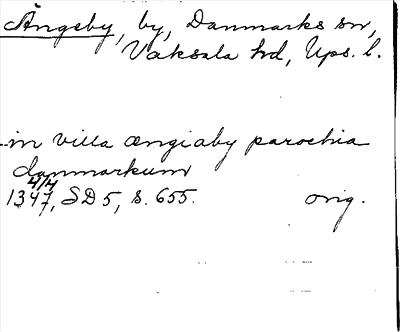 Ängeby, by, Danmarks sn,
Vaksala hd, Ups. l.
in villa ængiaby parochia
danmarkum
4/4
1347, SD 5, s. 655. orig.